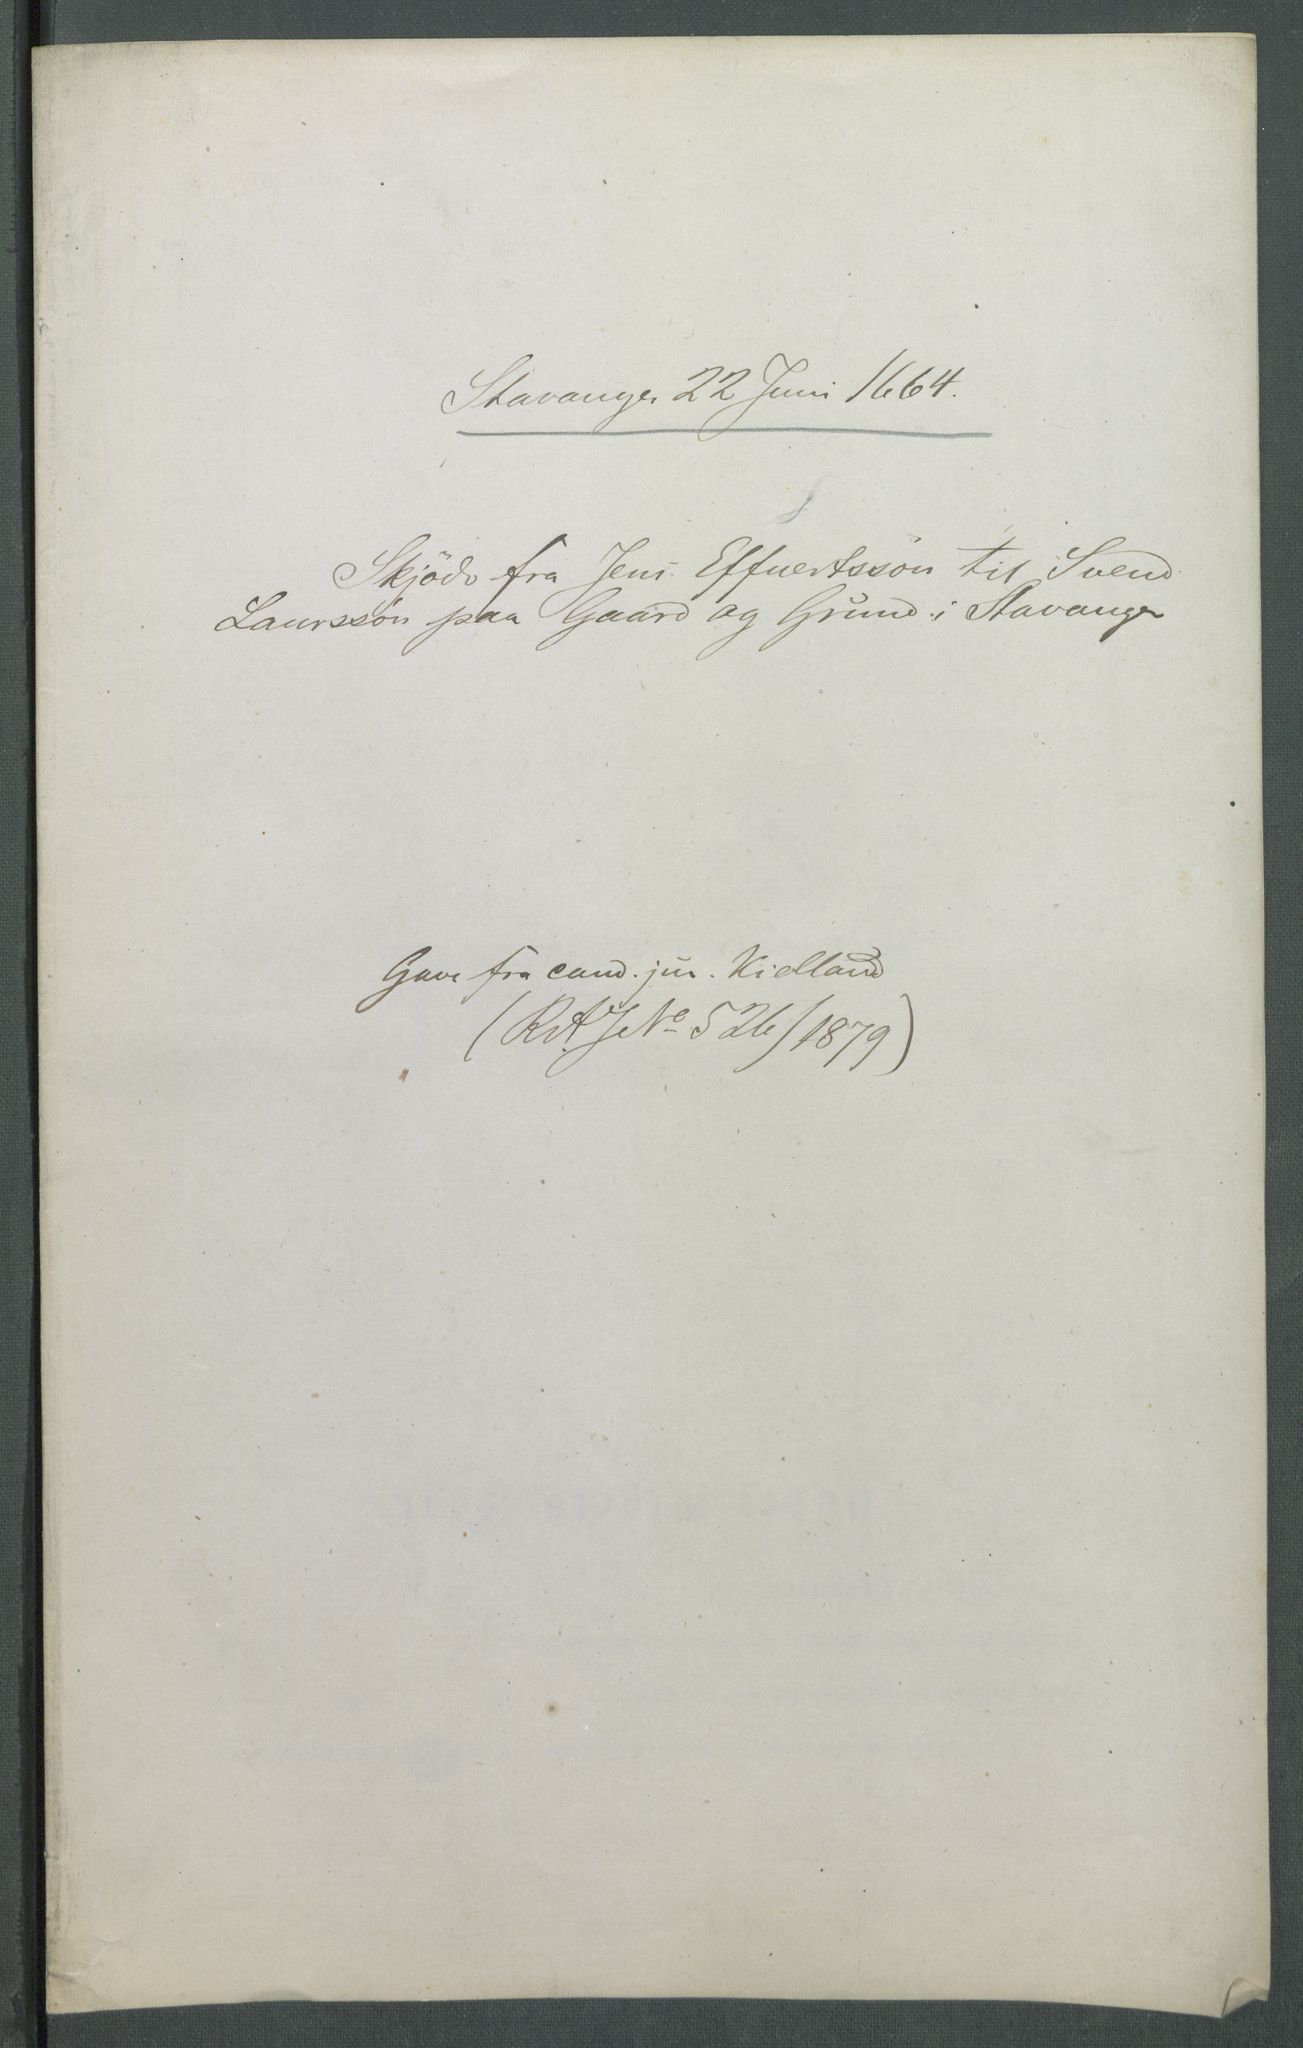 Stavanger 22 Juni 1664.
Skjöde fra Jens Effuertssön til Svend
Laurssön paa Gaard og Grund i Stavanger
Gave fra cand. jur. Kielland
(RA. J No 526/1879)